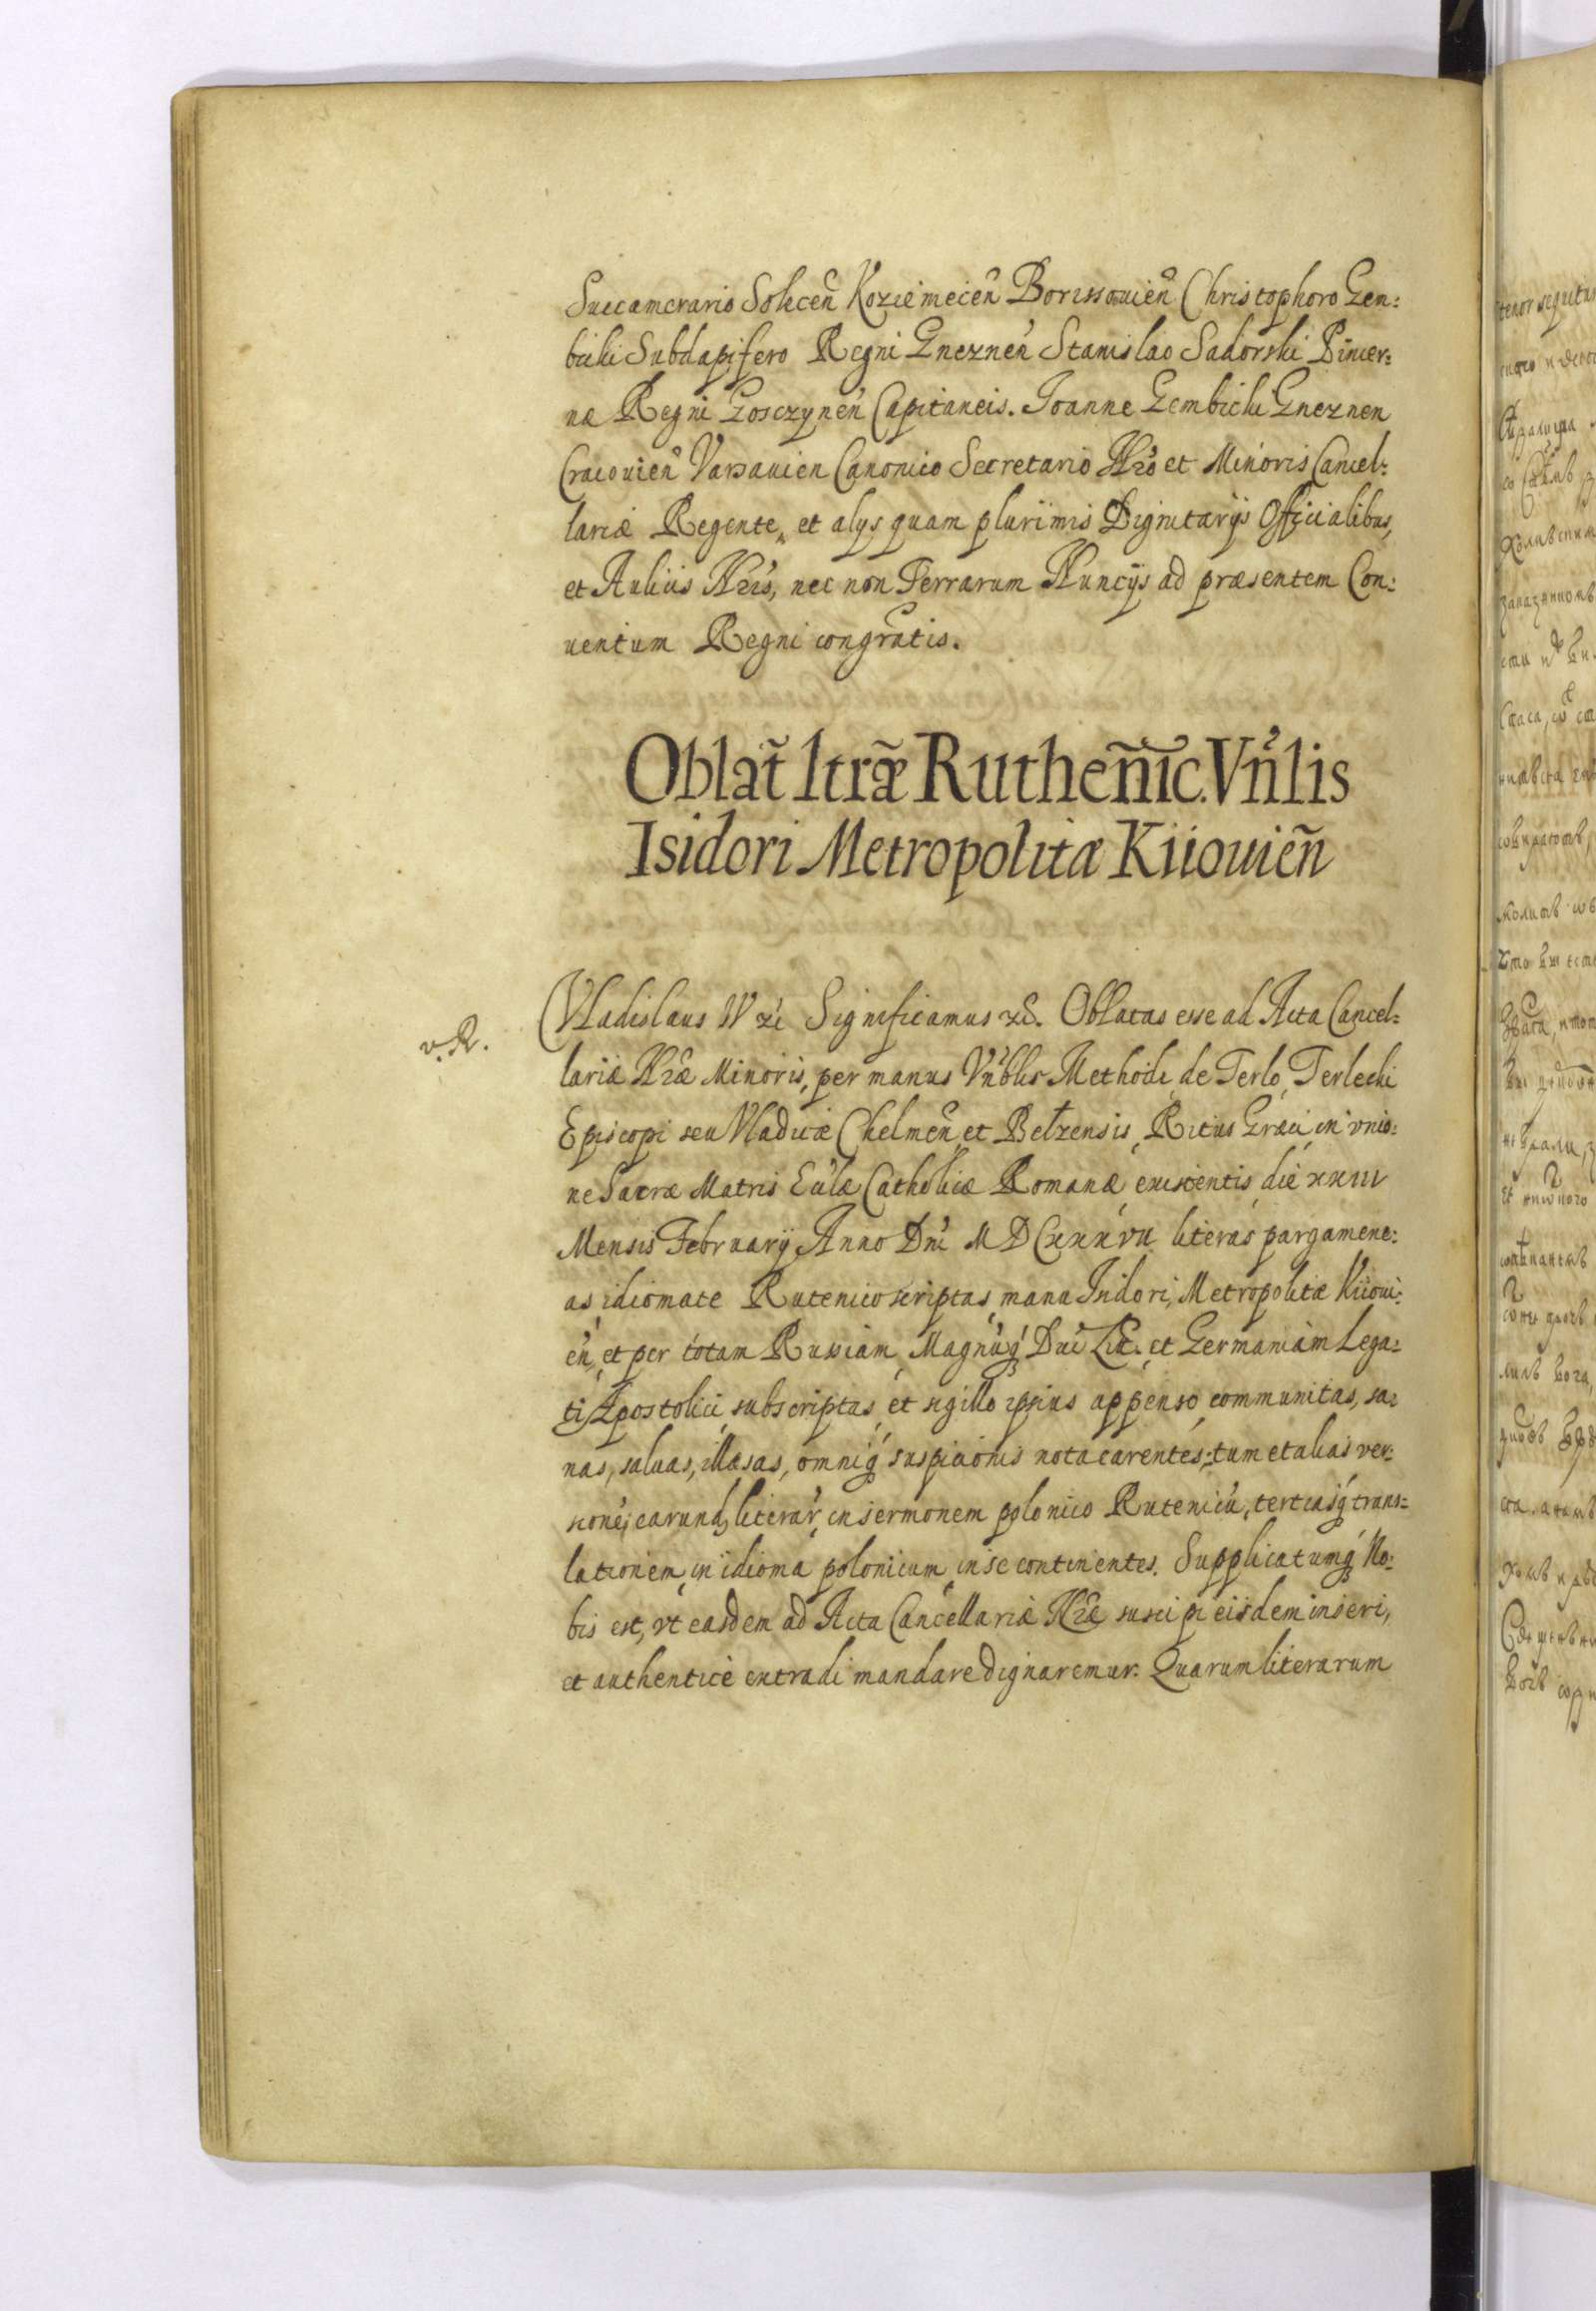 Succamerario Solecen̄ Kozienicen̄ Borissouien̄ Christophoro Gem:
bicki Subdapifero Regni Gneznen̄ Stanislao Sadorski Pincer:
næ Regni Gosczynen̄ Capitaneis. Joanne Gembicki Gneznen
Cracouien̄ Varsauien Canonico Secretario Nr̄o et Minoris Cancel:
lariæ Regente, et alys quam plurimis Dignitarÿs Officialibus,
et Aulicis Nr̄is, nec non Terrarum Nuncÿs ad præsentem Con:
uentum Regni congratis.
Oblat̃ ltrãe Ruthen̄ic. Vn̄lis
Isidori Metropolitæ Kiiouien̄
v. R.
Vladislaus IV etc Significamus etc. Oblatas esse ad Acta Cancel:
lariæ Nr̄æ Minoris, per manus Vn̄blis Methodi de Terlo Terlecki
Episcopi seu Vladicæ Chelmen̄ et Belzensis Ritus Græci in vnio:
ne Sacræ Matris Eccl̄æ Catholicæ Romanæ existentis die xxiii
Mensis Februarÿ Anno Dn̄i MDCxxxvii literas pargamene:
as idiomate Rutenico scriptas manu Isidori, Metropolitæ Kiioui:
en̄, et per totam Russiam Magnūq́ Duc̄ Lit. et Germaniam Lega:
ti Apostolici subscriptas et sigillo ipsius appenso communitas, sa:
nas, saluas, illæsas, omniq́ suspicionis nota carentes; tum et alias ver:
sione earund literar̄ in sermonem polonico Rutenicū, tertiasq́ trans:
lationem in idioma polonicum in se continentes. Supplicatumq́ No:
bis est, vt easdem ad Acta Cancellariæ Nr̄æ suscipi eisdem inseri,
et authenticè extradi mandare dignaremur. Quarum literarum
tenor sequitur